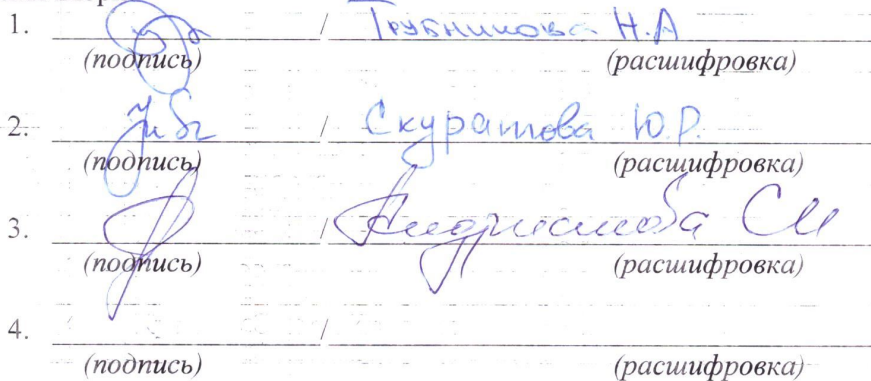 1. / Трубникова Н.А
(подпись) (расшифровка)
2. / Скуратова Ю.Р.
(подпись) (расшифровка)
3. / СИ
(подпись) (расшифровка)
4. /
(подпись) (расшифровка)